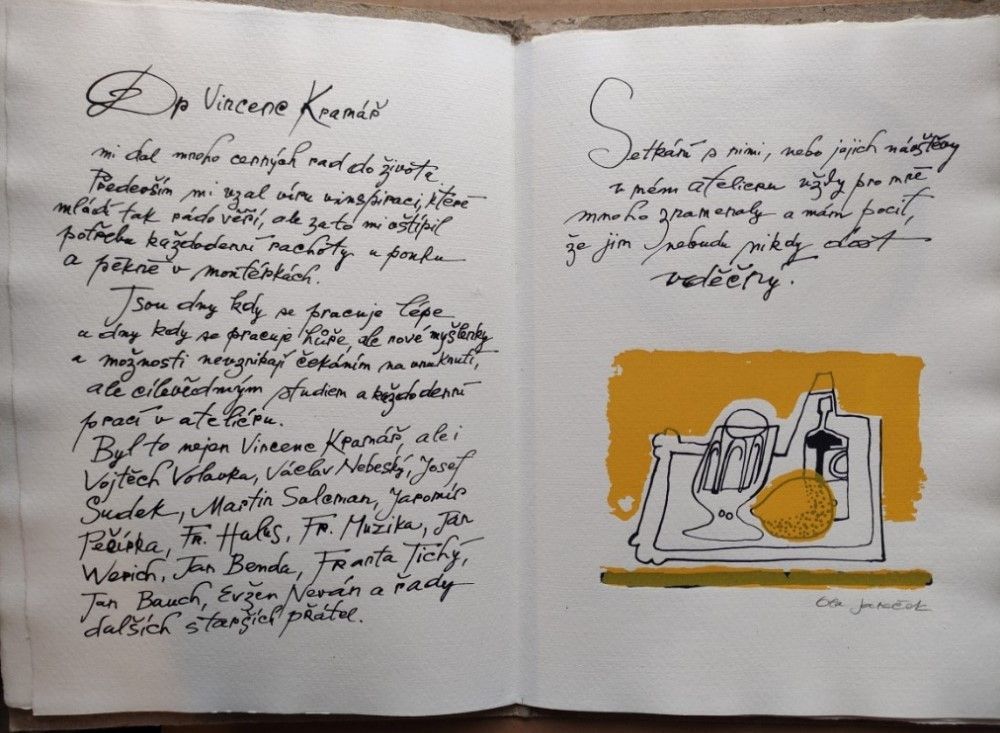 Dr Vincenc Kramář
mi dal mnoho cenných rad do života
Především mi vzal víru v inspiraci, které
mládí tak rádo věří, ale zato mi oštípil
potřebu každodenní rachoty u ponku
a pěkně v montérkách.
Jsou dny kdy se pracuje lépe
a dny kdy se pracuje hůře ale nové myšlenky
a možnosti nevznikají čekáním na vnuknutí,
ale cílevědomým studiem a každodenní
prací v ateliéru.
Byl to nejen Vincenc Kramář, ale i
Vojtěch Volavka, Václav Nebeský, Josef
Sudek, Martin Salcman, Jaromír
Pečírka, Fr. Halas, Fr. Muzika, Jan
Werich, Jan Benda, Franta Tichý,
Jan Bauch, Evžen Nevan a řady
dalších starších přátel.
Setkání s nimi, nebo jejich návštěvy
v mém atelieru vždy pro mně
mnoho znamenaly a mám pocit,
že jim nebudu nikdy dost
vděčný.
Ota Janeček